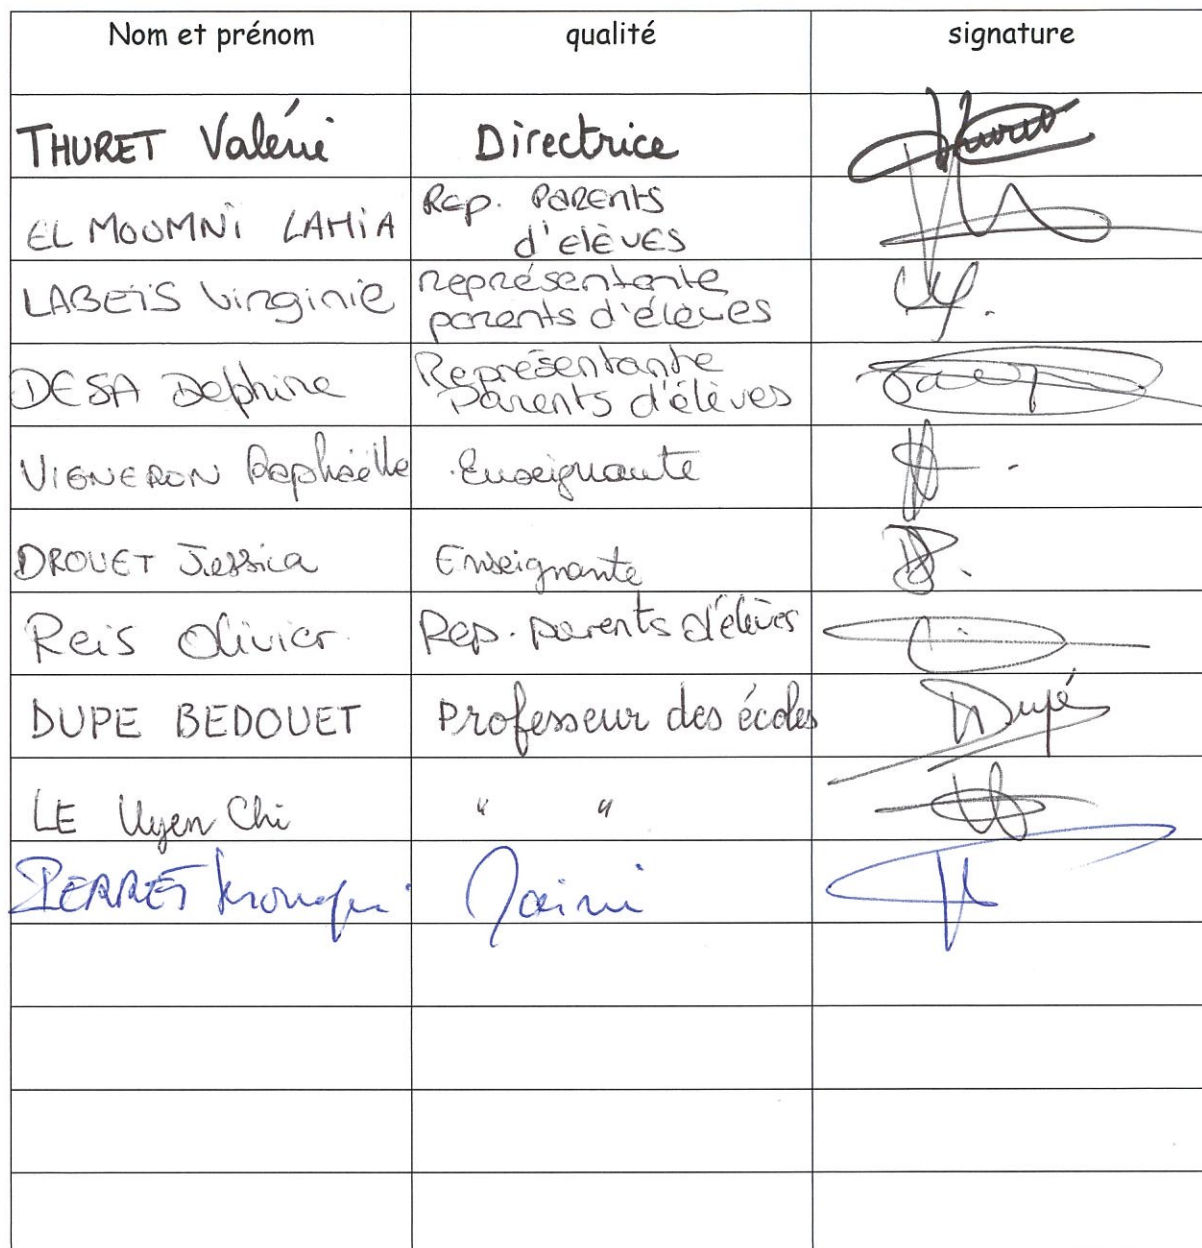 Nom et prénom qualité signature
THURET Valérie Directrice Thuret
EL MOUMNi LAMiA Rep. PARENTS
d'elèves
LABEiS Virginie Représentante
parents d'élèves
DESA Delphine Représentante
Parents d'élèves
VIGNERON Raphaëlle Enseignante
DROUET Jessica Enseignante
Reis Olivier Rep. parents d'élèves
DUPE BEDOUET Professeur des écoles Dupé
LE Uyen Chi " "
PERRET